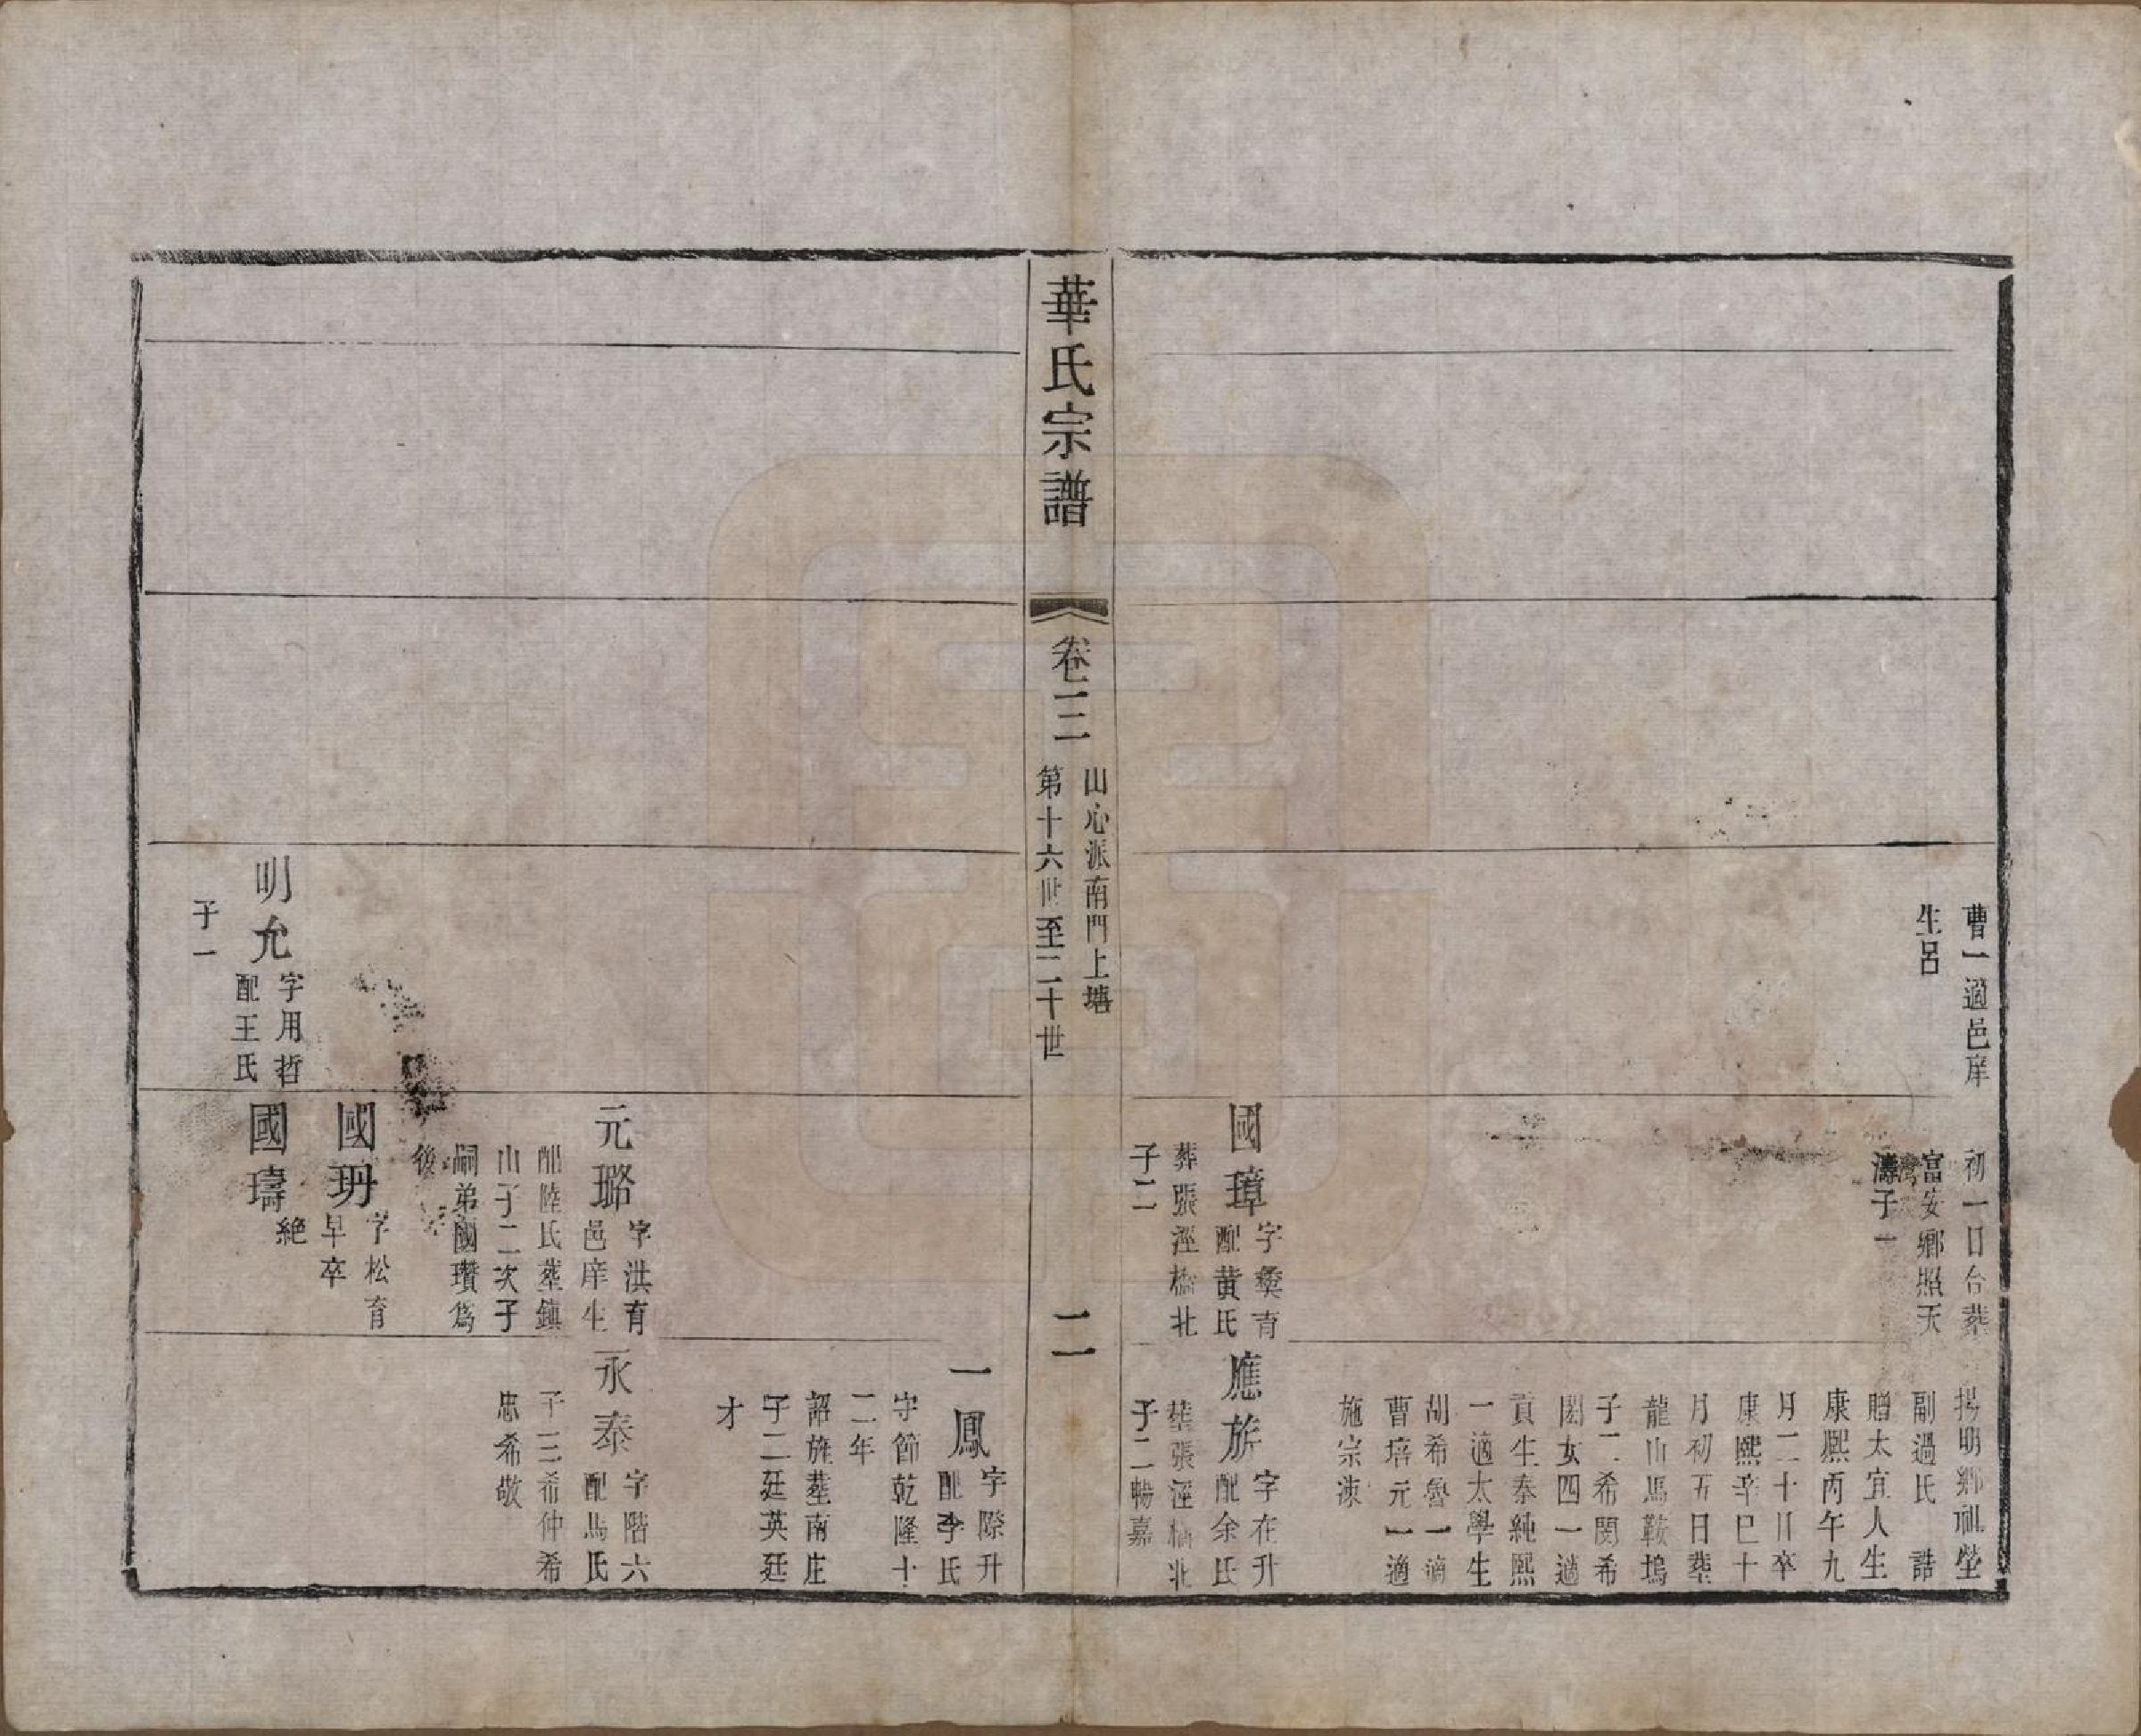 曹一適邑庠
生呂
初一日合葬
富安鄉照天
灣子一
揚明鄉祖塋
副過氏　誥
贈太宜人生
康熙丙午九
月二十日卒
康熙辛巳十
月初五日葬
龍山馬鞍塢
子二希閔希
閎女四一適
貢生秦純熙
一適太學生
胡希魯一適
曹培元一適
施宗洓
國璋
字奬育
配黄氏
葬張涇橋北
子二
應旂
字在升
配余氏
塟張涇橋北
子二暢嘉
華氏宗譜
卷三二
山心派南門上塘
第十六世至二十世
二
一鳳
字際升
配李氏
守節乾隆十
二年
詔旌塟南庄
子二廷英廷
才
元璐
字洪育
邑庠生
配陸氏塟鎮
山子二次子
嗣弟國瓚爲
後
永泰
字階六
配馬氏
子三希仲希
忠希敬
國玬
字松育
早卒
絶
明允
字用哲
配王氏
子一
國璹